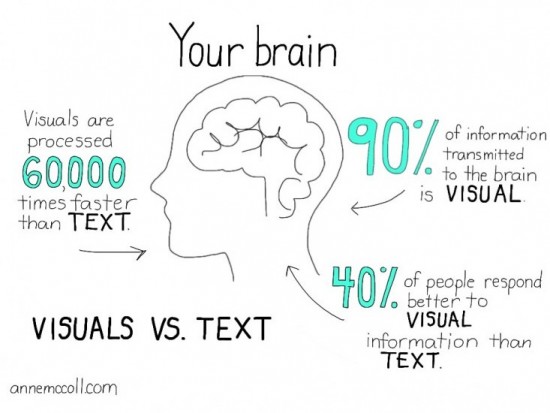 Your brain
Visuals are
processed
60,000
times faster
than TEXT.
90%
of information
transmitted
to the brain
is VISUAL.
40%
of people respond
better to
VISUAL
information than
TEXT.
VISUALS VS. TEXT
annemccoll.com